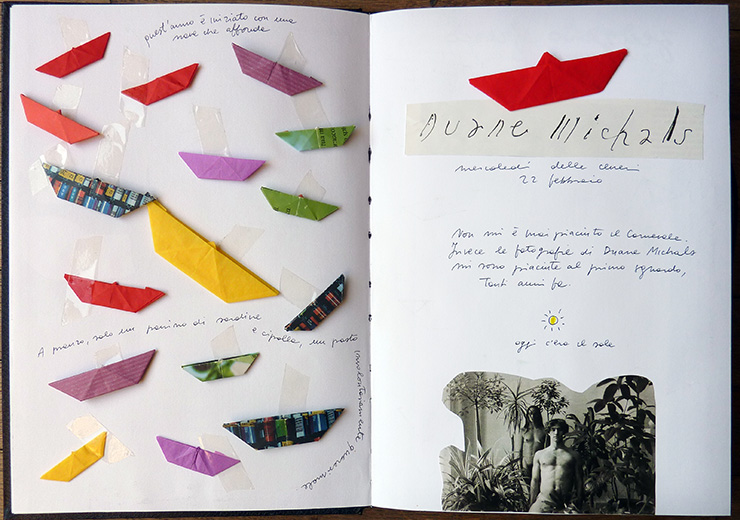 quest'anno è iniziato con una
nave che affonda
A pranzo, solo un panino di sardine
e cipolla, un pasto
involontariamente quaresimale
Duane Michals
mercoledì delle ceneri
22 febbraio
Non mi è mai piaciuto il Carnevale.
Invece le fotografie di Duane Michals
mi sono piaciute al primo sguardo,
Tanti anni fa.
oggi c'era il sole